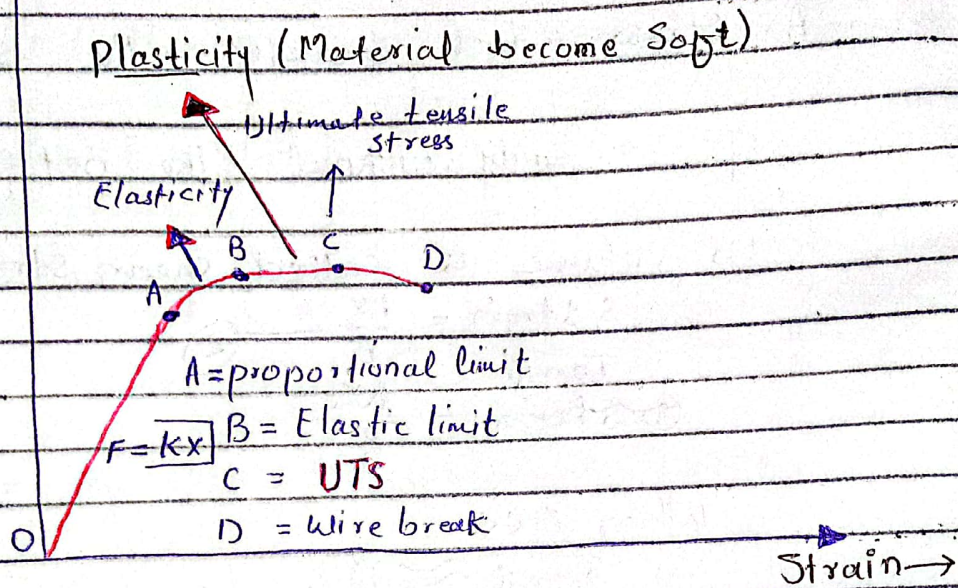 Plasticity (Material become Soft)
Ultimate tensile
stress
Elasticity
B
C
D
A
A = proportional limit
F = KX
B = Elastic limit
C = UTS
D = Wire break
O
Strain→